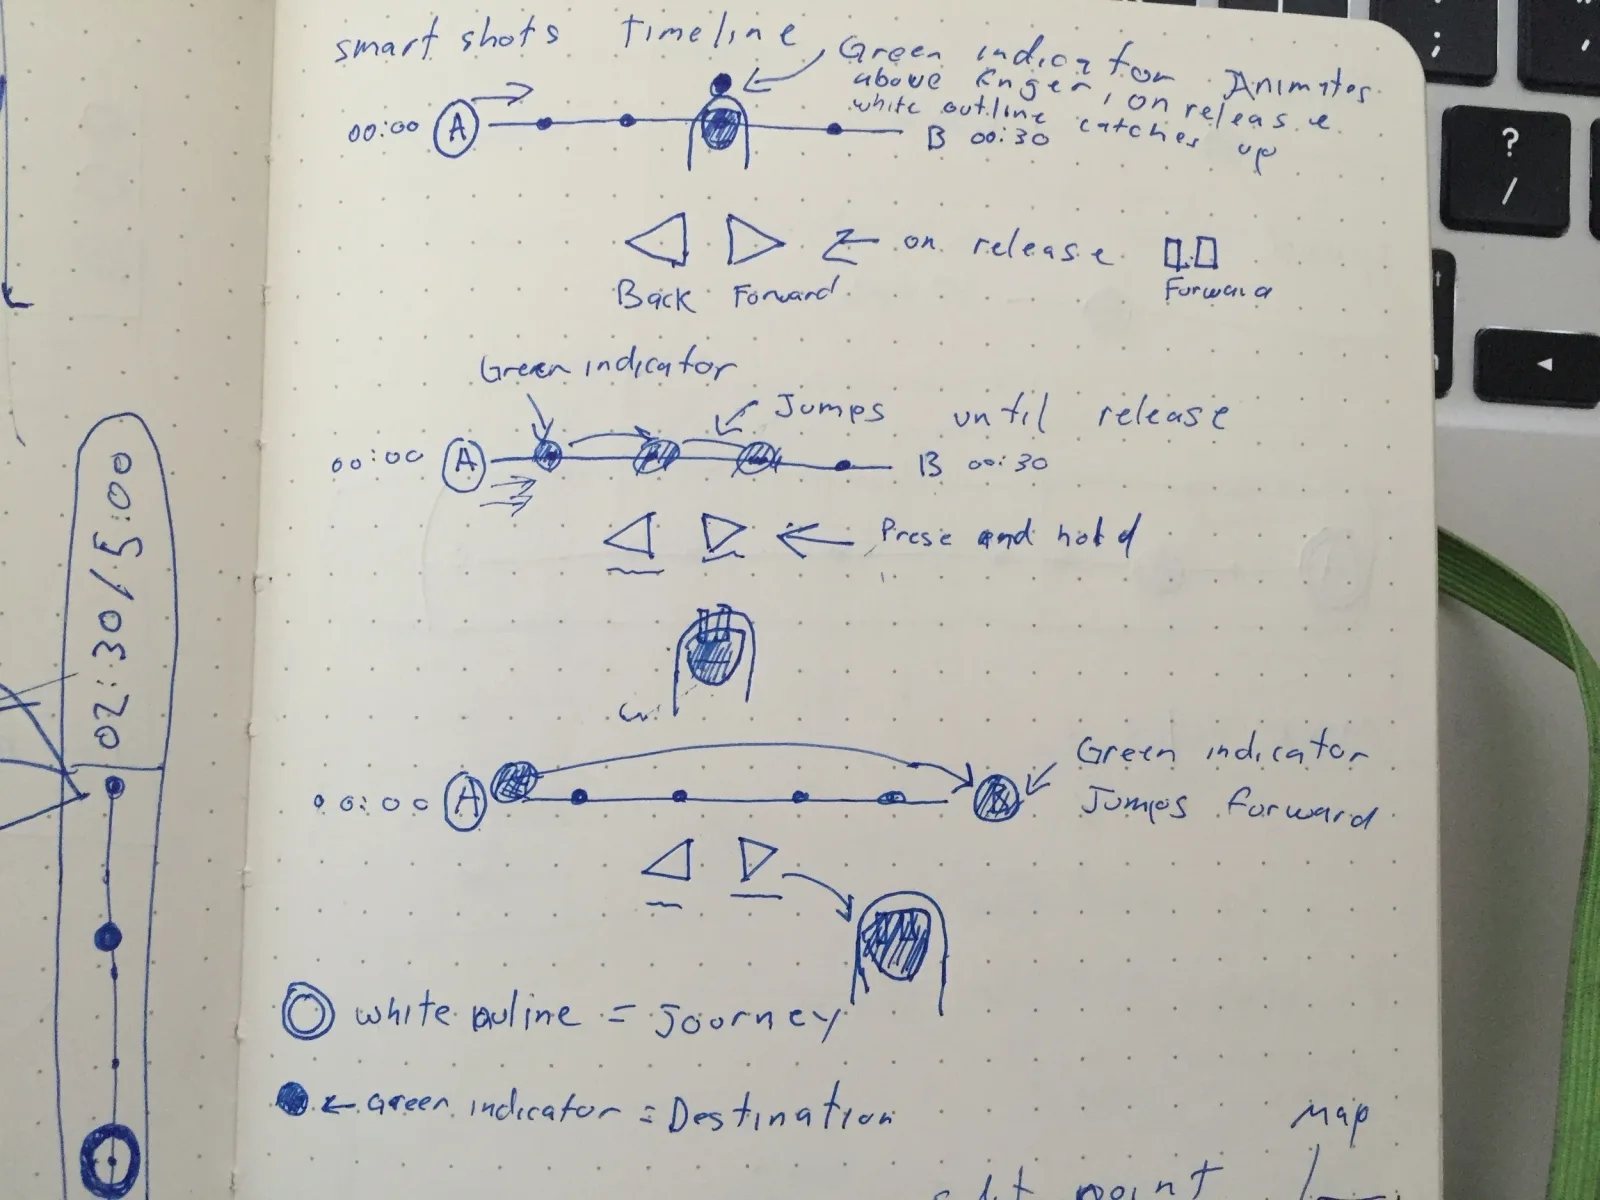 smart shots timeline
Green indicator Animates
above finger, on release
white outline catches up
00:00 A B 00:30
Back Forward
on release
Forward
Green indicator
Jumps until release
00:00 A B 00:30
Prese and hold
Green indicator
Jumps forward
00:00 A B
white ouline = Journey
← Green indicator = Destination
Map
point
02:30/5:00
?
/
;